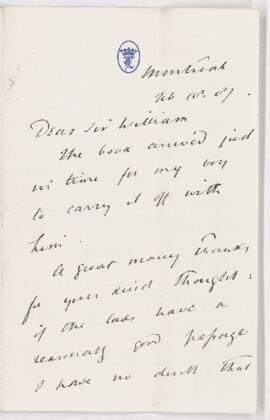 Montreal
Feb 10. 07.
Dear Sir William
The book arrived just
in time for my boy
to carry it off with
him.
A great many thanks
for your kind thought:
if the lads have a
reasonably good passage
I have no doubt that